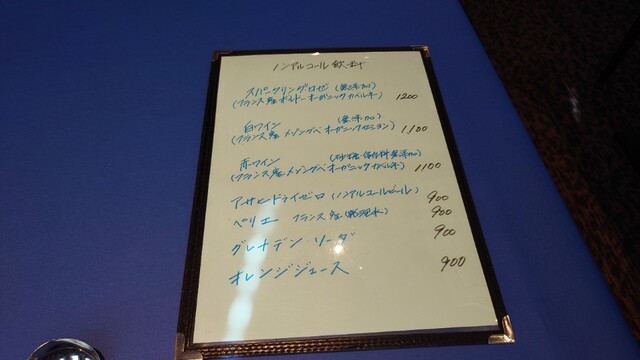 ノンアルコール飲料
スパークリングロゼ (無添加)
(フランス産ボルドーオーガニックカベルネ) 1200
白ワイン (無添加)
(フランス産 メゾングベオーガニックセミヨン) 1100
赤ワイン (砂糖・保存料無添加)
(フランス産メゾングベオーガニックカベルネ) 1100
アサヒドライゼロ (ノンアルコールビール) 900
ペリエ フランス産 (炭酸水) 900
グレナデン・ソーダ 900
オレンジジュース 900